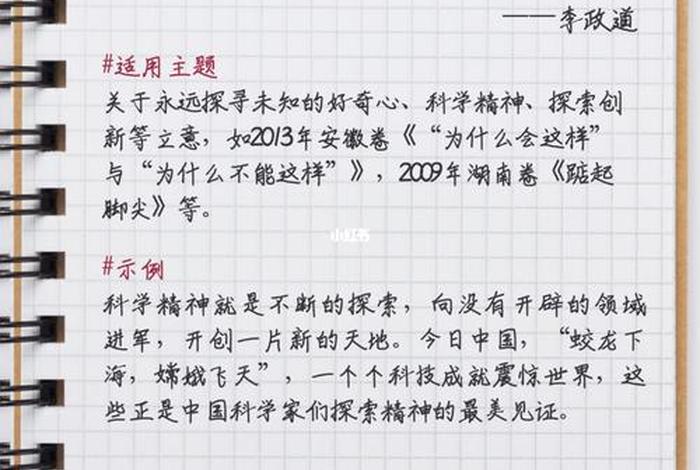 ——李政道
#适用主题
关于永远探寻未知的好奇心、科学精神、探索创
新等立意，如2013年安徽卷《“为什么会这样”
与“为什么不能这样”》，2009年湖南卷《踮起
脚尖》等。
小红书
#示例
科学精神就是不断的探索，向没有开辟的领域
进军，开创一片新的天地。今日中国，“蛟龙下
海，嫦娥飞天”，一个个科技成就震惊世界，这
些正是中国科学家们探索精神的最美见证。